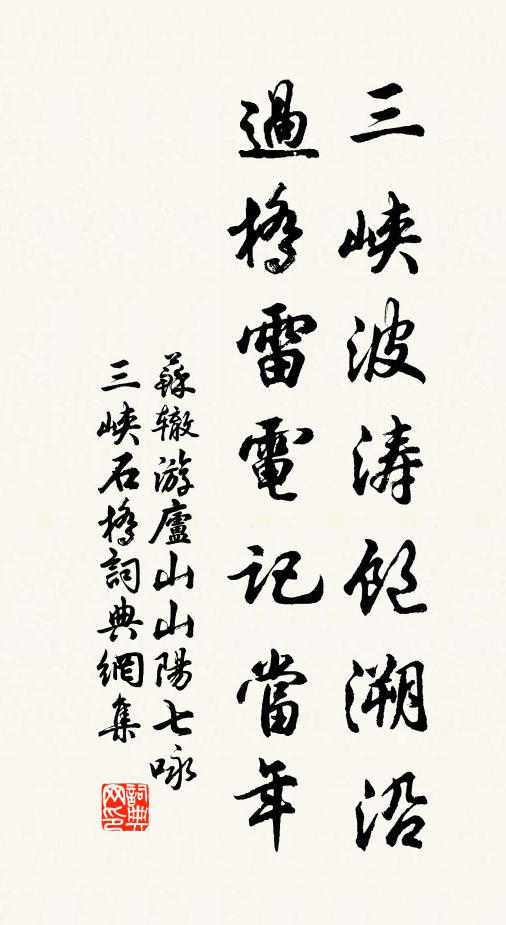 三峽波濤飽溯沿
過橋雷電記當年
蘇轍游廬山山陽七咏
三峽石橋詞典網集
詞典网印